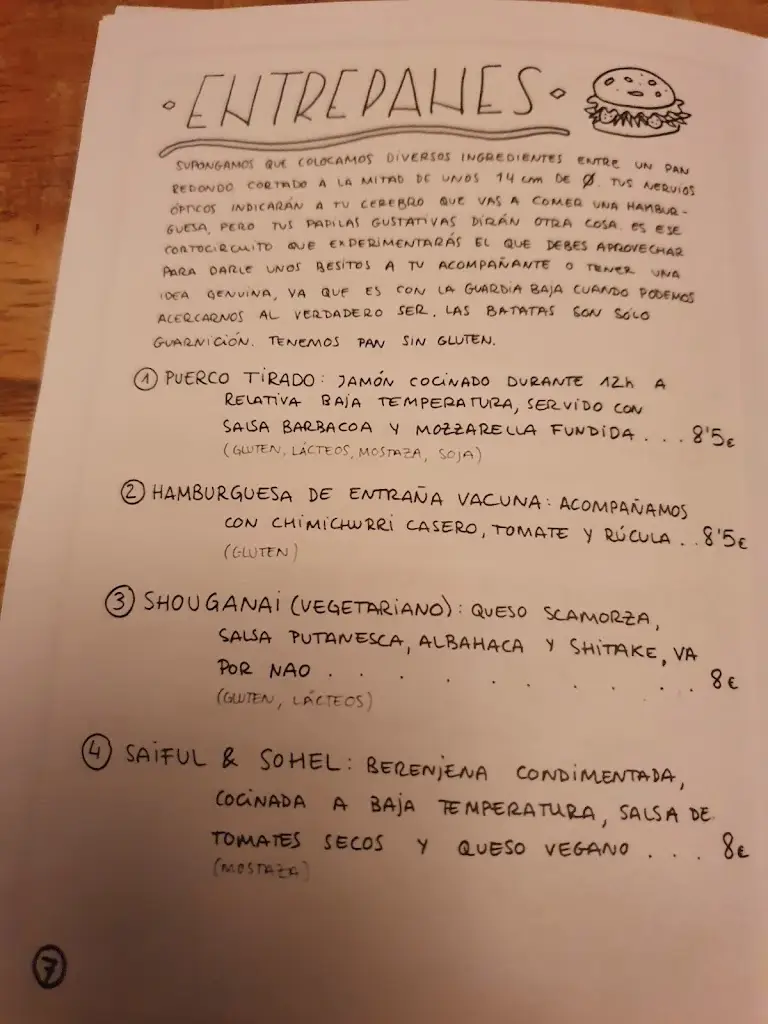 ENTREPANES
SUPONGAMOS QUE COLOCAMOS DIVERSOS INGREDIENTES ENTRE UN PAN
REDONDO CORTADO A LA MITAD DE UNOS 14 cm DE Ø. TUS NERVIOS
ÓPTICOS INDICARÁN A TU CEREBRO QUE VAS A COMER UNA HAMBUR-
GUESA, PERO TUS PAPILAS GUSTATIVAS DIRÁN OTRA COSA. ES ESE
CORTOCIRCUITO QUE EXPERIMENTARÁS EL QUE DEBES APROVECHAR
PARA DARLE UNOS BESITOS A TU ACOMPAÑANTE O TENER UNA
IDEA GENUINA, YA QUE ES CON LA GUARDIA BAJA CUANDO PODEMOS
ACERCARNOS AL VERDADERO SER. LAS BATATAS SON SÓLO
GUARNICIÓN. TENEMOS PAN SIN GLUTEN.
1 PUERCO TIRADO: JAMÓN COCINADO DURANTE 12h A
RELATIVA BAJA TEMPERATURA, SERVIDO CON
SALSA BARBACOA Y MOZZARELLA FUNDIDA . . . 8'5€
(GLUTEN, LÁCTEOS, MOSTAZA, SOJA)
2 HAMBURGUESA DE ENTRAÑA VACUNA: ACOMPAÑAMOS
CON CHIMICHURRI CASERO, TOMATE Y RÚCULA . . 8'5€
(GLUTEN)
3 SHOUGANAI (VEGETARIANO): QUESO SCAMORZA,
SALSA PUTANESCA, ALBAHACA Y SHITAKE, VA
POR NAO . . . . . . . . . . 8€
(GLUTEN, LÁCTEOS)
4 SAIFUL & SOHEL: BERENJENA CONDIMENTADA,
COCINADA A BAJA TEMPERATURA, SALSA DE
TOMATES SECOS Y QUESO VEGANO . . . 8€
(MOSTAZA)
7